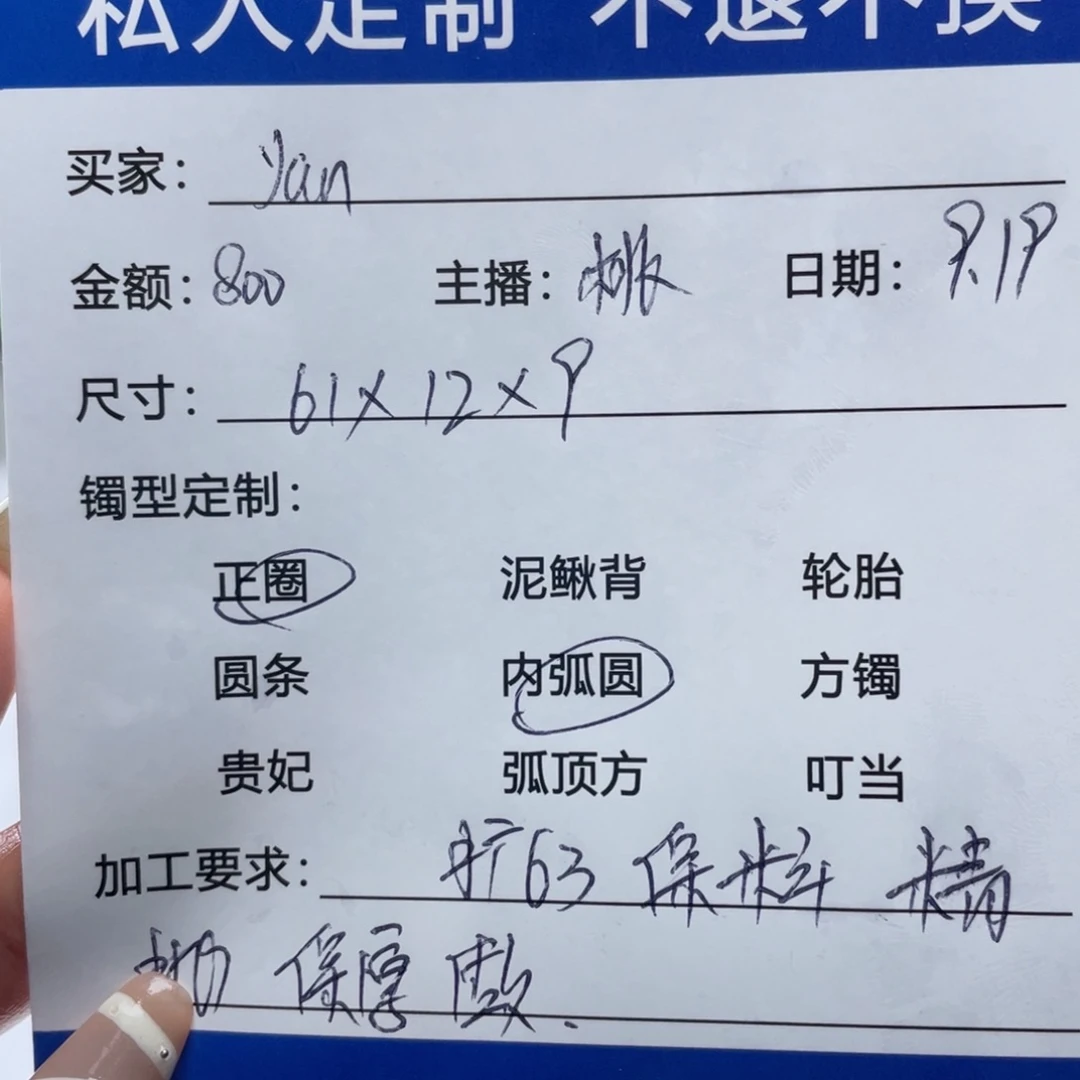 私人定制 不退不换
买家: yan
金额: 800 主播: 桃 日期: 9.19
尺寸: 61×12×9
镯型定制:
正圈 泥鳅背 轮胎
圆条 内弧圆 方镯
贵妃 弧顶方 叮当
加工要求: 扩63 保粗 精
抛 保厚 做.